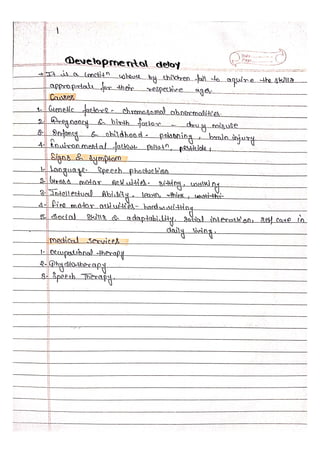 1
Developmental delay
→ It is a conditn whereby children fail to aquire the skills
appropriate for their respective ages.
Causes
1. Genetic factors- chromosomal abnormalities
2. Pregnancy & birth factor - drug misuse
3. Infancy & childhood- poisoning, brain injury
4- Environmental factors poison, pesticide,
Signs & symptom
1- Language- Speech production
2- Gross motor Activities- sitting, walking
3- Intellectual Ability- learn, think,
4- Fine motor activities- handwritting
5- Social Skills & adaptability. social interaction, self care in
daily living.
medical services
1- occupational-therapy
2- Physiotherapy
3- Speech Therapy.